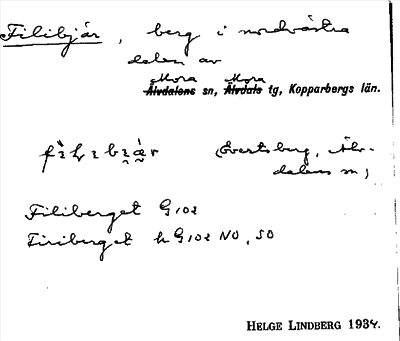 Filibjär, berg i nordvästra
delen av
Mora Mora
Älvdalens sn, Älvdals tg, Kopparbergs län.
Evertsberg, Älv-
dalens sn;
Filiberget G102
Firiberget h G102 NO, SO
HELGE LINDBERG 1934.